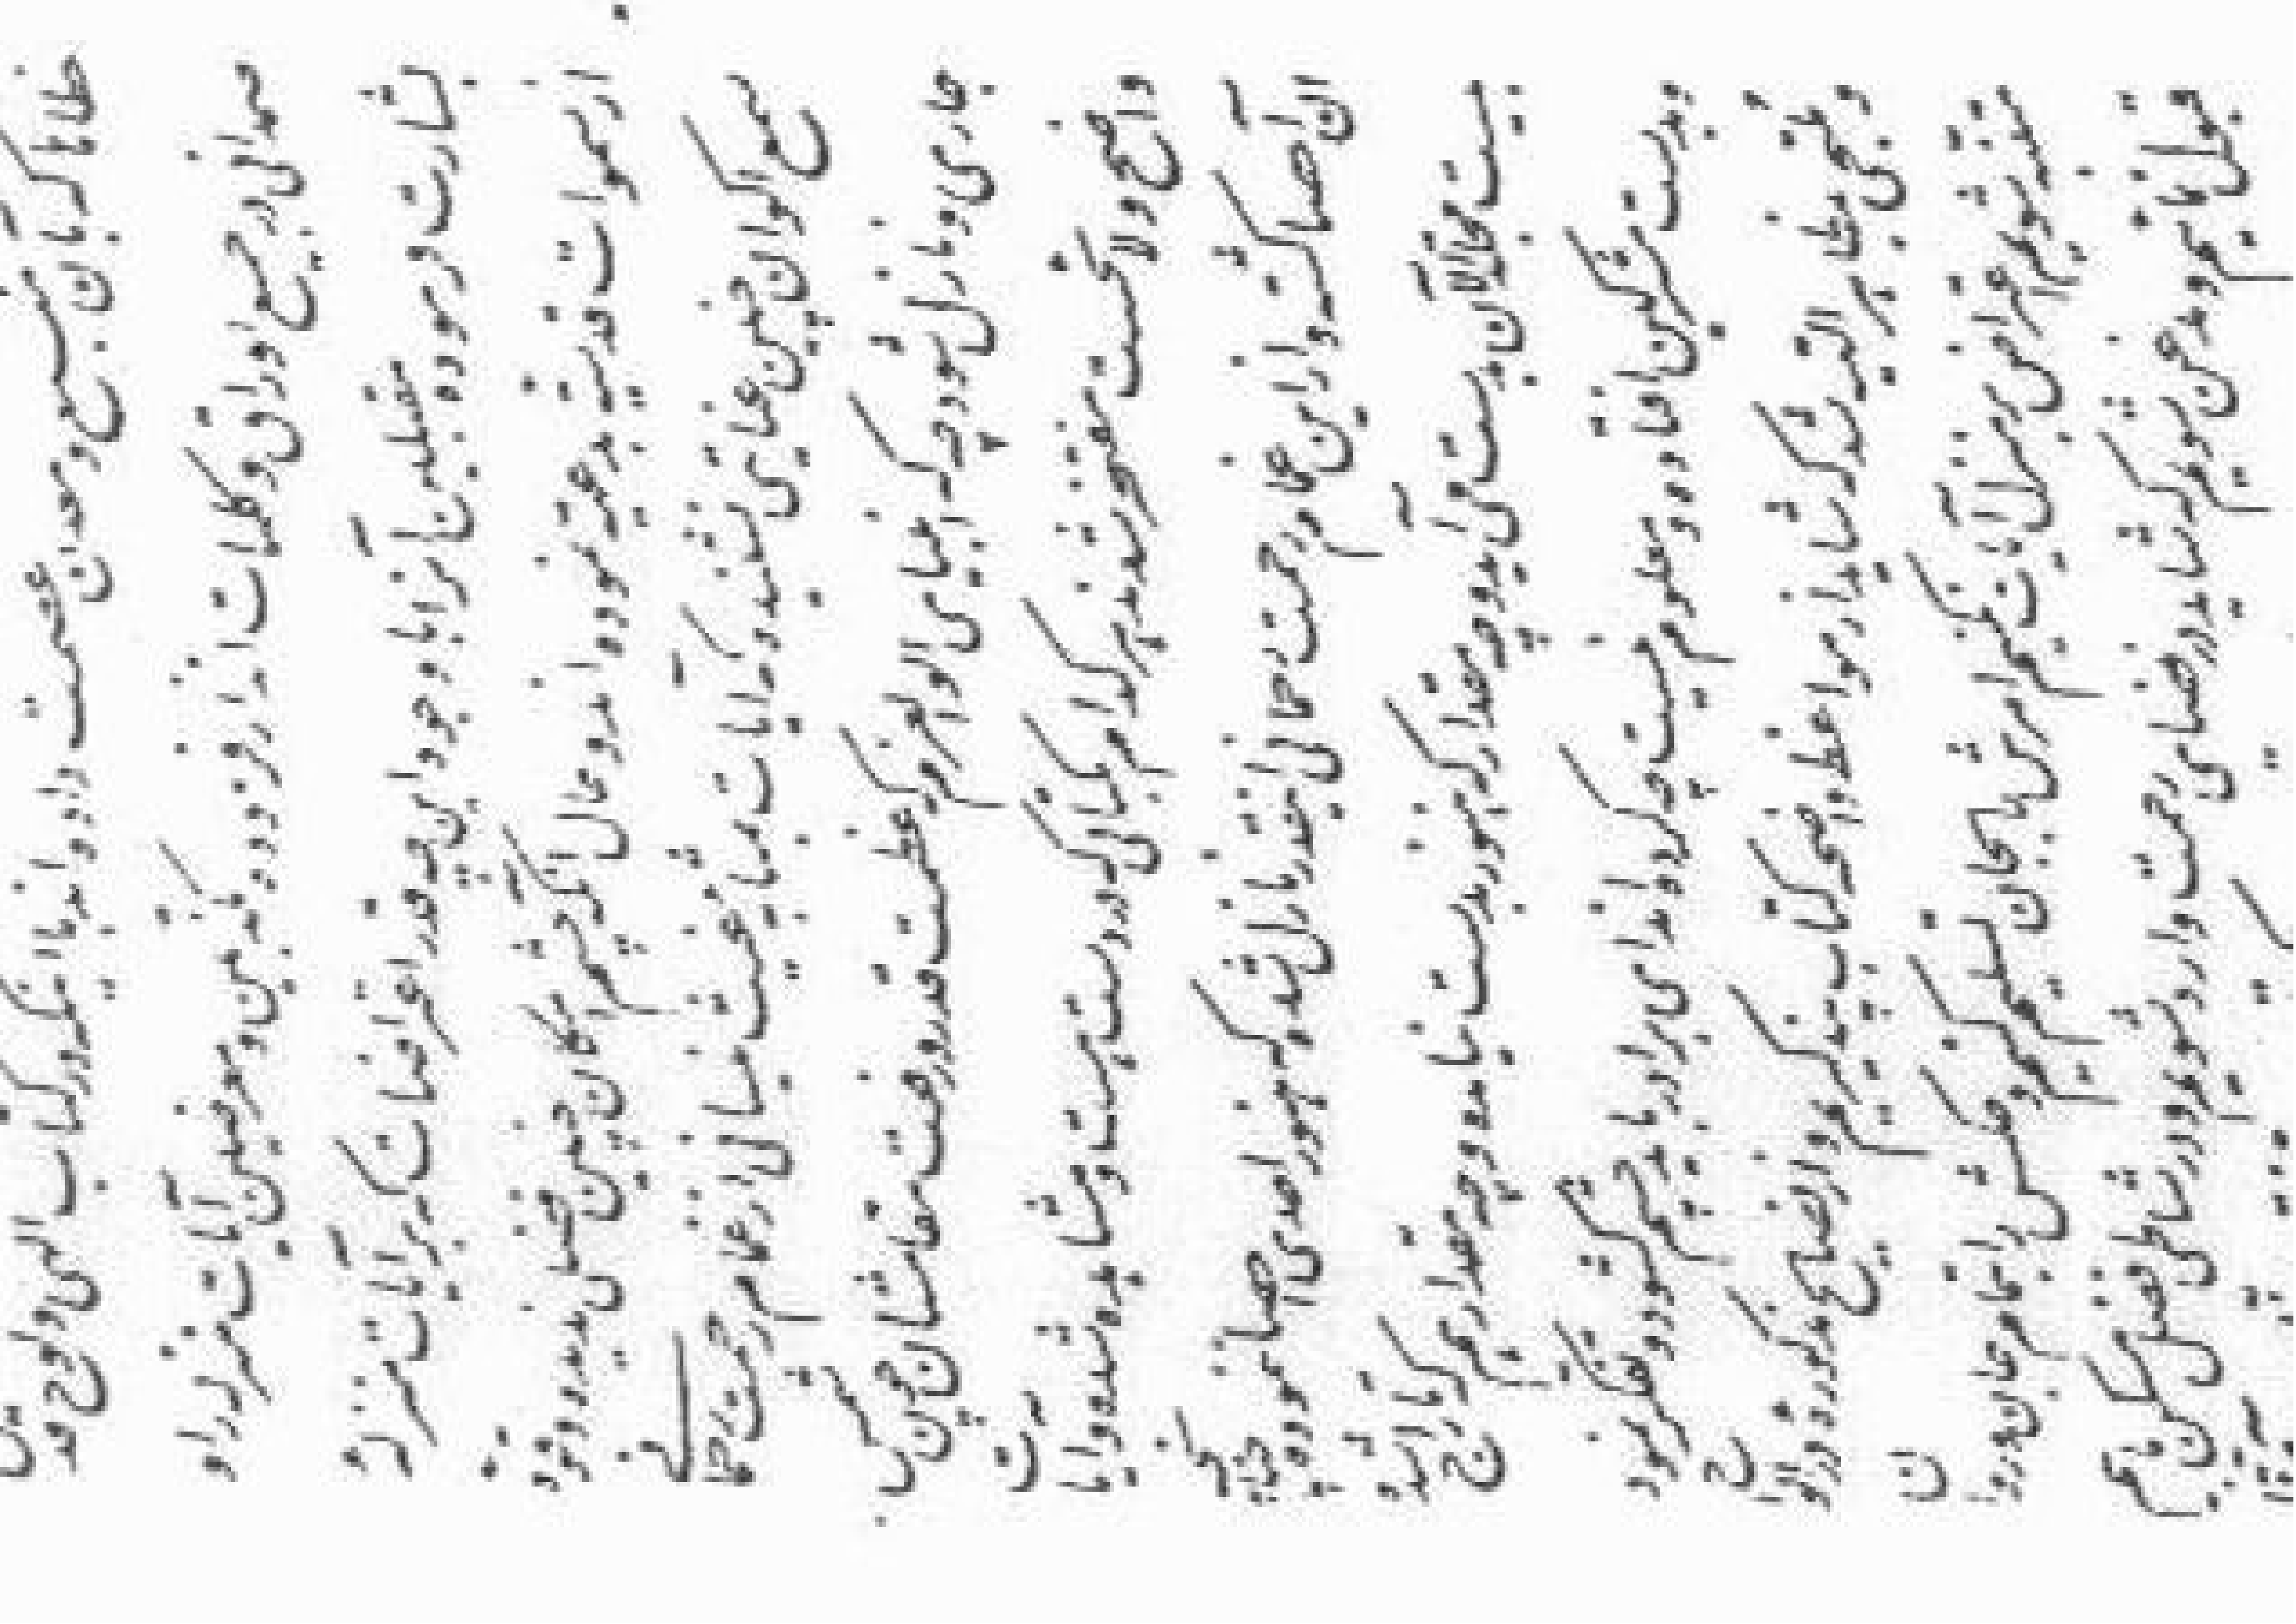 خطایا کرمان سمع و معدن عصمت داده‌اند با اینکه در کتاب الهی و لوح قدسی
صمدانی در جمیع اوراق و کلمات انذار فرموده مکذبین و معرضین آیات منزله را و
بشارت فرموده مقبلین آنرا با وجود این چه قدر اعتراضات که بر آیات منزله
از سموات قدسیه بدعیه نموده‌اند و حال آنکه چشم امکان چنین فضلی ندیده و قوه
سمع اکوان چنین عنایتی نشنیده که آیات بمثابه غیث نیسانی از غمام رحمت رحمانی
جاری و نازل شود چه که انبیای اولوالعزم که عظمت قدر و رفعت مقامشان چون شمس
واضح و لائحست مفتخر شدند هر کدام بکتابی که در دست هست و مشاهده شده و آیات
آن احصا گشته و از این غمام رحمت رحمانی اینقدر نازل شده که هنوز احدی احصا ننموده چنانچه
بیست مجلد الآن بدست می‌آید و چه مقدار که هنوز بدست نیامده و چه مقدار هم که تاراج شده
و بدست مشرکین افتاده و معلوم نیست چه کرده‌اند ای برادر باید چشم گشود و تفکر نمود
و ملتجی بمظاهر الهیه شد که شاید از مواعظ واضحه کتاب پند گیریم و از نصایح مذکوره در الواح
متنبه شویم اعتراض بر منزل آیات نکنیم امرش را بجان تسلیم کنیم و حکمش را بتمام جان و روان
قبول نمائیم و مذعن شویم که شاید در فضای رحمت وارد شویم و در شاطی فضل مسکن یابیم